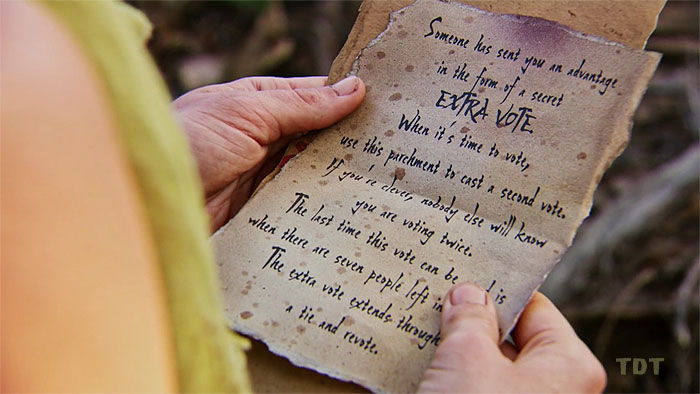 Someone has sent you an advantage
in the form of a secret
EXTRA VOTE.
When it's time to vote,
use this parchment to cast a second vote.
If you're clever, nobody else will know
you are voting twice.
The last time this vote can be is
when there are seven people left in
The extra vote extends through
a tie and revote.
TDT